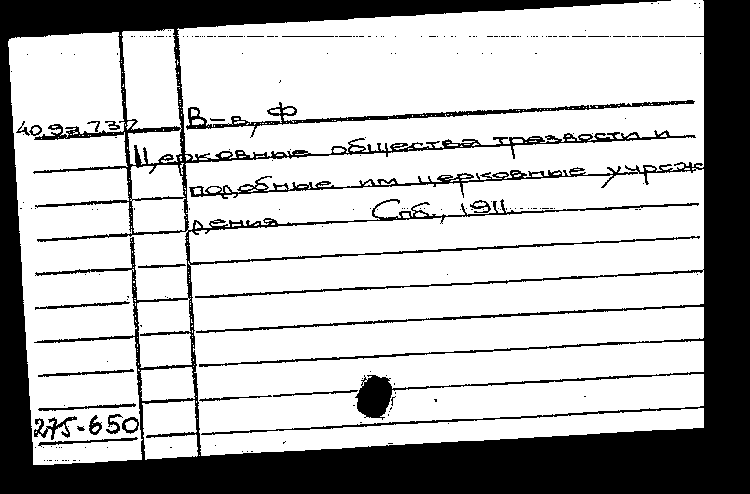 В-в, Ф
40.9з.737
Церковные общества трезвости и
подобные им церковные учреж
дения Спб., 1911.
275-650